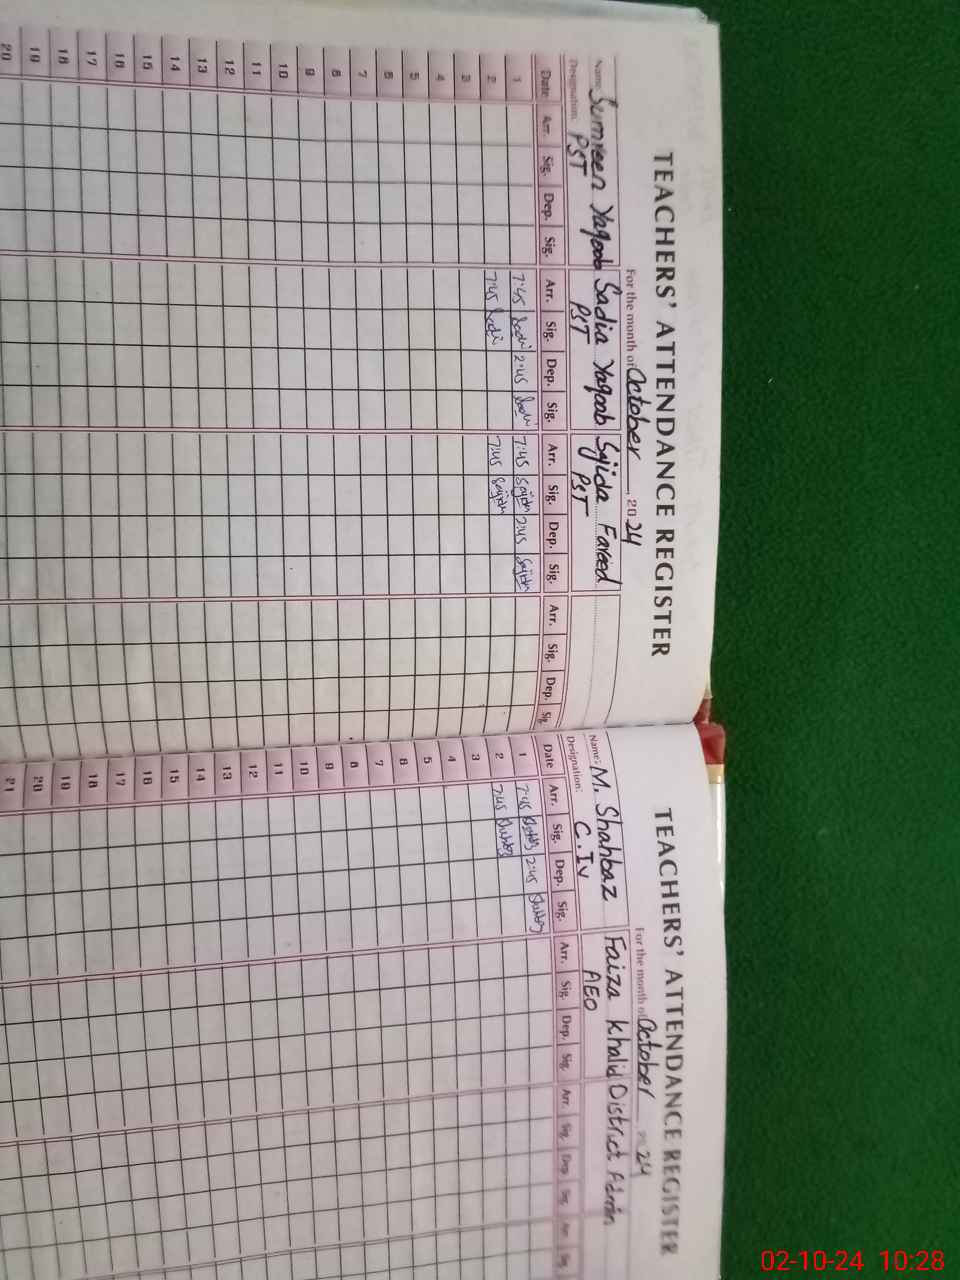 TEACHERS' ATTENDANCE REGISTER
For the month of October 2024
Name: Sumreen Yaqoob Sadia Yaqoob Sajida Fareed
Designation: PST PST PST
Date Arr. Sig. Dep. Sig. Arr. Sig. Dep. Sig. Arr. Sig. Dep. Sig. Arr. Sig. Dep. Sig.
1 7:45 Sadia 2:45 Sadia 7:45 Sajida 2:45 Sajida
2 7:45 Sadia 7:45 Sajida
3
4
5
6
7
8
9
10
11
12
13
14
15
16
17
18
19
20
TEACHERS' ATTENDANCE REGISTER
For the month of October 2024
Name: M. Shahbaz Faiza Khalid District Admin
Designation: C.Iv AEO
Date Arr. Sig. Dep. Sig. Arr. Sig. Dep. Sig. Arr. Sig. Dep. Sig. Arr. Sig.
1 7:45 Shahbaz 2:45 Shahbaz
2 7:45 Shahbaz
3
4
5
6
7
8
9
10
11
12
13
14
15
16
17
18
19
20
21
02-10-24 10:28